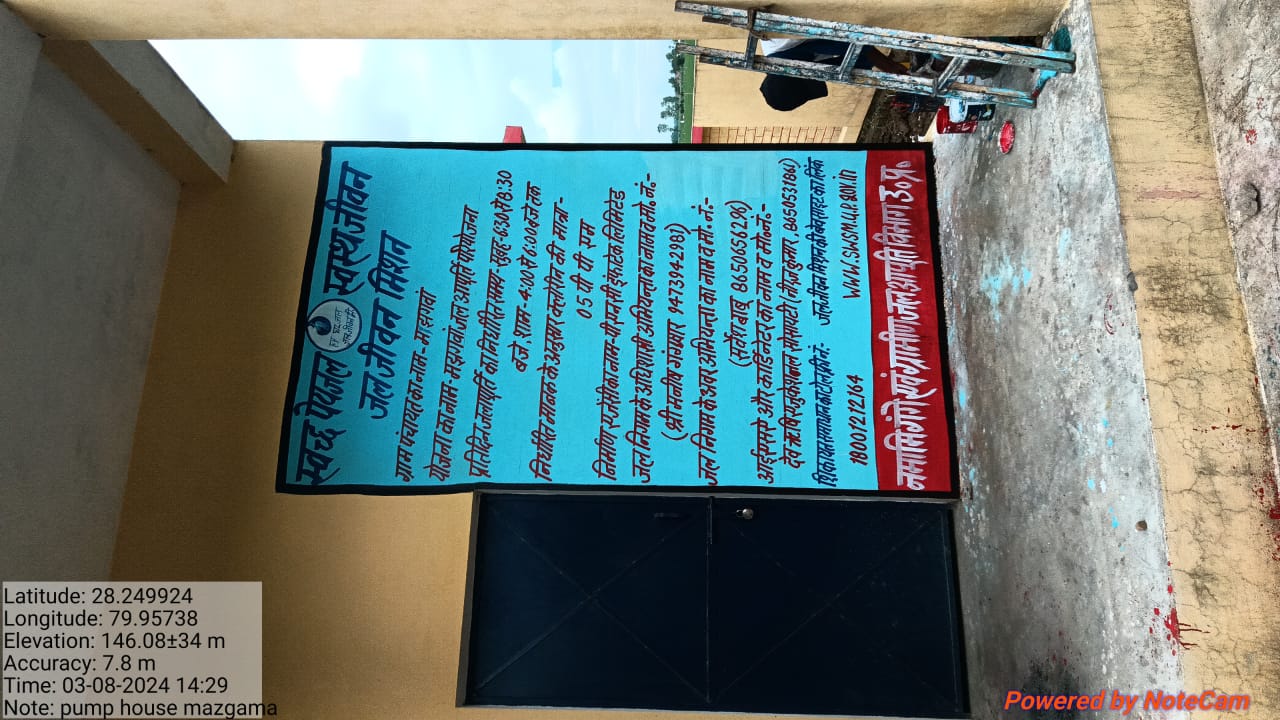 स्वच्छ पेयजल स्वस्थ जीवन
जल जीवन मिशन
ग्राम पंचायत का नाम- मझगवाँ
योजना का नाम- मझगवां जल आपूर्ति परियोजना
प्रतिदिन जलापूर्ति का निर्धारित समय- सुबह- 6:30 से 8:30
बजे, शाम- 4:00 से 6:00 बजे तक
निर्धारित मानक के अनुसार क्लोरीन की मात्रा-
05 पी पी एम
निर्माण एजेंसी का नाम- पी.एन.सी इंफ्राटेक लिमिटेड
जल निगम के अधिशाषी अभियन्ता का नाम व मो. नं.-
(श्री मनीष गंगवार 9473942981)
जल निगम के अवर अभियन्ता का नाम व मो. नं.-
(सर्वेश बाबू 8850656296)
आई एस ए और कार्डिनेटर का नाम व मो. नं.-
नीरज कुमार, 865053186)
जल जीवन मिशन की वेबसाइट का लिंक
18001212164 WWW.SWSM.U.P. GOV.IN
नमामि गंगे एवं ग्रामीण जल आपूर्ति विभाग उ० प्र०
Latitude: 28.249924
Longitude: 79.95738
Elevation: 146.08±34 m
Accuracy: 7.8 m
Time: 03-08-2024 14:29
Note: pump house mazgama
Powered by NoteCam